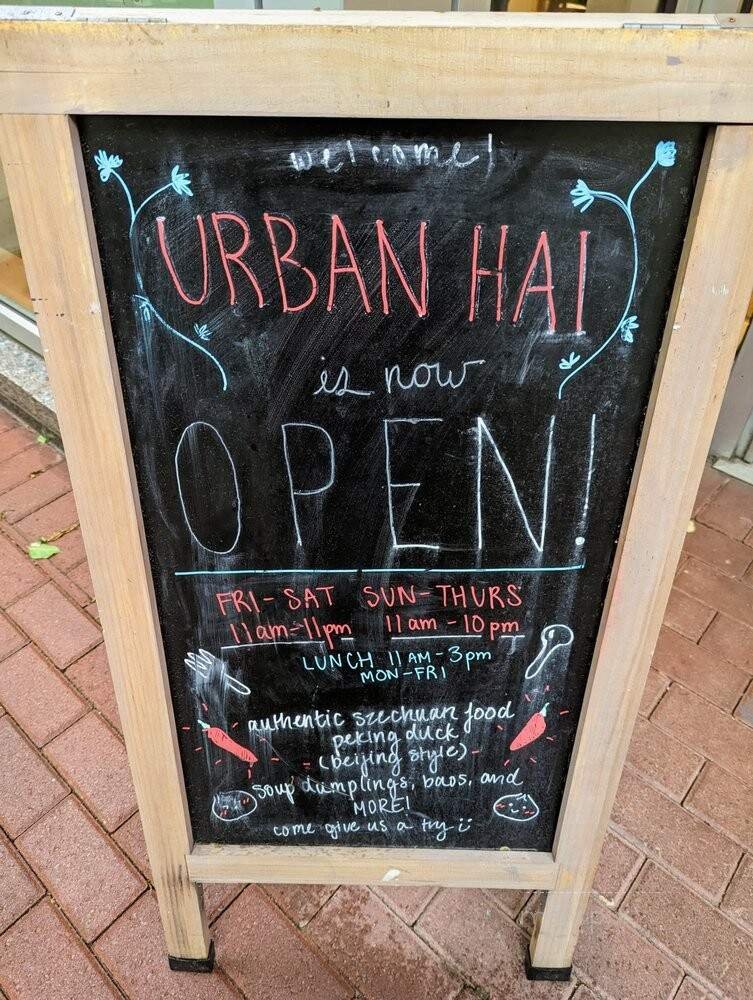 welcome!
URBAN HAI
is now
OPEN!
FRI-SAT SUN-THURS
11am-11pm 11am-10pm
LUNCH 11AM-3pm
MON-FRI
authentic szechuan food
peking duck
(beijing style)
soup dumplings, baos, and
MORE!
come give us a try